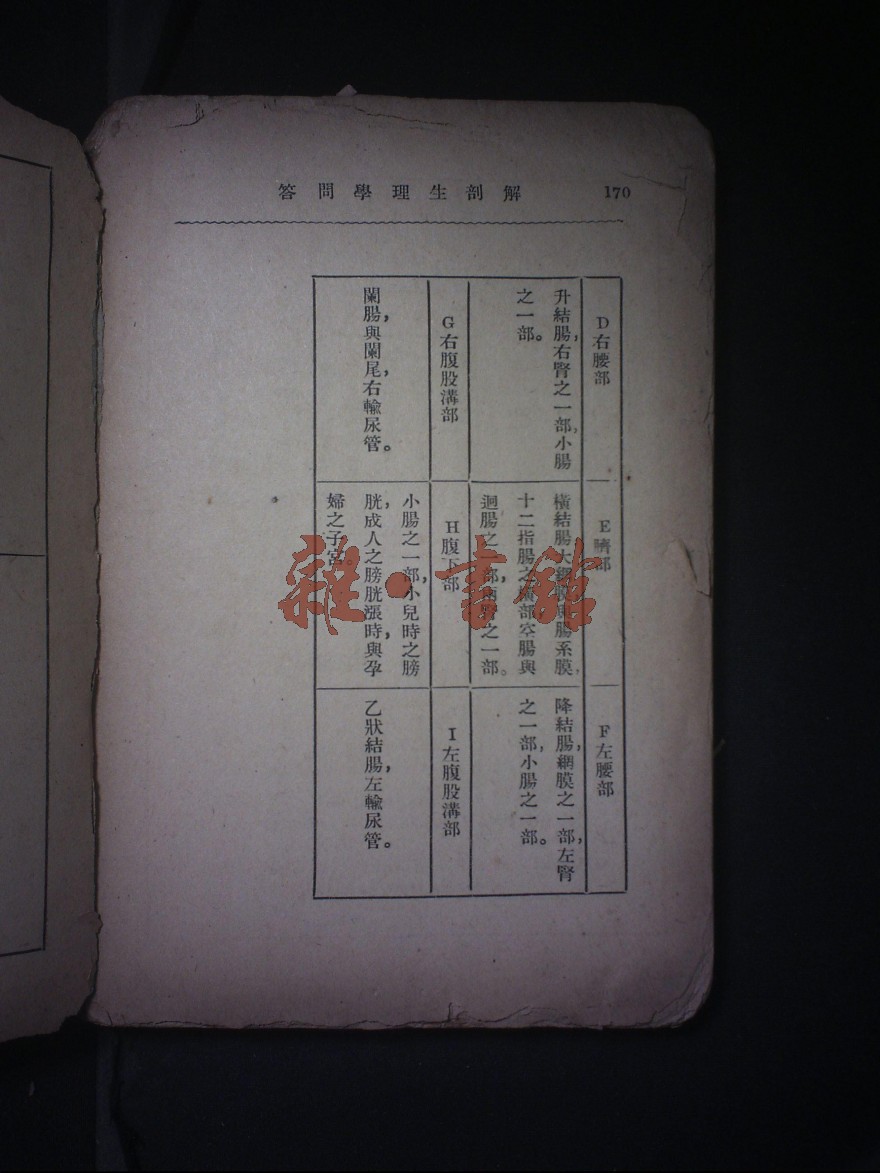 解剖生理學問答 170
D右腰部
升結腸,右腎之一部,小腸
之一部。
E臍部
橫結腸大網膜與腸系膜,
十二指腸之橫部空腸與
迴腸之一部,兩腎之一部。
F左腰部
降結腸,網膜之一部,左腎
之一部,小腸之一部。
G右腹股溝部
闌腸,與闌尾,右輸尿管。
H腹下部
小腸之一部,小兒時之膀
胱,成人之膀胱漲時,與孕
婦之子宮。
I左腹股溝部
乙狀結腸,左輸尿管。
雜·書館